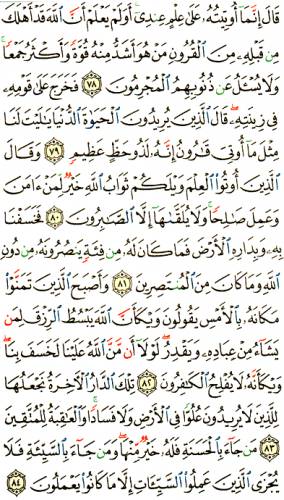 قَالَ إِنَّمَا أُوتِيتُهُ عَلَىٰ عِلْمٍ عِندِي أَوَلَمْ يَعْلَمْ أَنَّ ٱللَّهَ قَدْ أَهْلَكَ
مِن قَبْلِهِ مِنَ ٱلْقُرُونِ مَنْ هُوَ أَشَدُّ مِنْهُ قُوَّةً وَأَكْثَرُ جَمْعًا
وَلَا يُسْـَٔلُ عَن ذُنُوبِهِمُ ٱلْمُجْرِمُونَ ٧٨ فَخَرَجَ عَلَىٰ قَوْمِهِ
فِي زِينَتِهِ قَالَ ٱلَّذِينَ يُرِيدُونَ ٱلْحَيَوٰةَ ٱلدُّنْيَا يَٰلَيْتَ لَنَا
مِثْلَ مَا أُوتِيَ قَٰرُونُ إِنَّهُ لَذُو حَظٍّ عَظِيمٍ ٧٩ وَقَالَ
ٱلَّذِينَ أُوتُوا۟ ٱلْعِلْمَ وَيْلَكُمْ ثَوَابُ ٱللَّهِ خَيْرٌ لِّمَنْ ءَامَنَ
وَعَمِلَ صَٰلِحًا وَلَا يُلَقَّىٰهَا إِلَّا ٱلصَّٰبِرُونَ ٨٠ فَخَسَفْنَا
بِهِ وَبِدَارِهِ ٱلْأَرْضَ فَمَا كَانَ لَهُ مِن فِئَةٍ يَنصُرُونَهُ مِن دُونِ
ٱللَّهِ وَمَا كَانَ مِنَ ٱلْمُنتَصِرِينَ ٨١ وَأَصْبَحَ ٱلَّذِينَ تَمَنَّوْا۟
مَكَانَهُ بِٱلْأَمْسِ يَقُولُونَ وَيْكَأَنَّ ٱللَّهَ يَبْسُطُ ٱلرِّزْقَ لِمَن
يَشَاءُ مِنْ عِبَادِهِ وَيَقْدِرُ لَوْلَا أَن مَّنَّ ٱللَّهُ عَلَيْنَا لَخَسَفَ بِنَا
وَيْكَأَنَّهُ لَا يُفْلِحُ ٱلْكَٰفِرُونَ ٨٢ تِلْكَ ٱلدَّارُ ٱلْءَاخِرَةُ نَجْعَلُهَا
لِلَّذِينَ لَا يُرِيدُونَ عُلُوًّا فِي ٱلْأَرْضِ وَلَا فَسَادًا وَٱلْعَٰقِبَةُ لِلْمُتَّقِينَ
٨٣ مَن جَاءَ بِٱلْحَسَنَةِ فَلَهُ خَيْرٌ مِّنْهَا وَمَن جَاءَ بِٱلسَّيِّئَةِ فَلَا
يُجْزَى ٱلَّذِينَ عَمِلُوا۟ ٱلسَّيِّـَٔاتِ إِلَّا مَا كَانُوا۟ يَعْمَلُونَ ٨٤